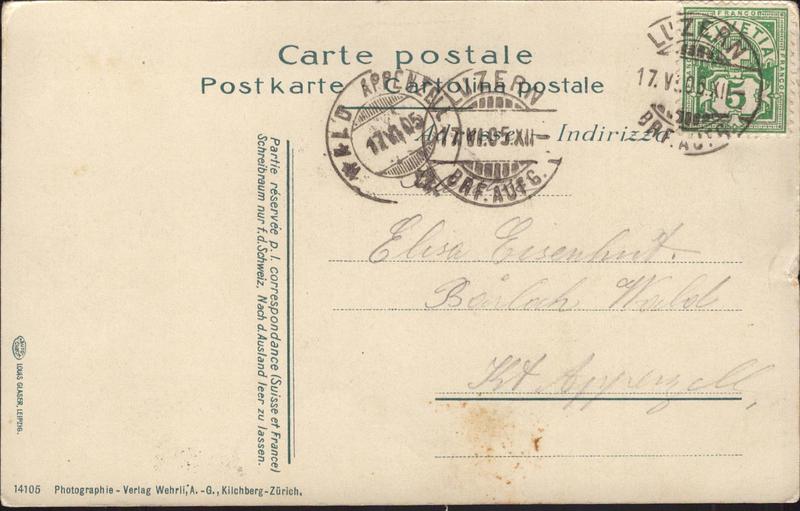 Carte postale
Postkarte - Cartolina postale
Adresse - Indirizzo
FRANCO
HELVETIA
FRANCO
5
LUZERN
17.VI.05.XII
BRF.AUFG.
LUZERN
17.VI.05.XII
BRF.AUFG.
WALD
APPENZELL
17.VI.05
Elisa Eisenhut.
Bärloch Wald
Kt Appenzell
Partie réservée p.l. correspondance (Suisse et France)
Schreibraum nur f.d. Schweiz. Nach d. Ausland leer zu lassen.
LOUIS GLASER, LEIPZIG.
14105 Photographie - Verlag Wehrli, A. - G., Kilchberg - Zürich.